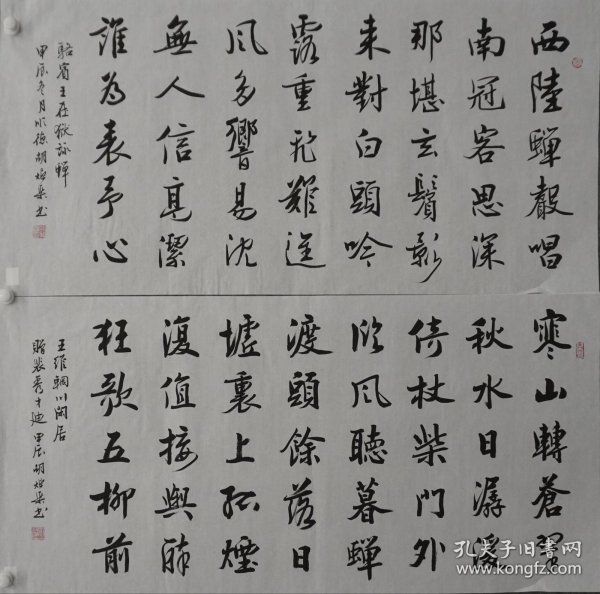 西陸蟬聲唱
南冠客思深
那堪玄鬢影
来對白頭吟
露重飛難進
風多響易沈
無人信高潔
誰為表予心
駱賓王在獄詠蟬
甲辰冬月順德胡书
寒山轉蒼翠
秋水日潺湲
倚杖柴門外
临风聽暮蟬
渡頭餘落日
墟裏上孤煙
復值接輿醉
狂歌五柳前
王維輞川閑居
贈裴秀才迪 甲辰 胡书
孔夫子旧书网
www.kongfz.com